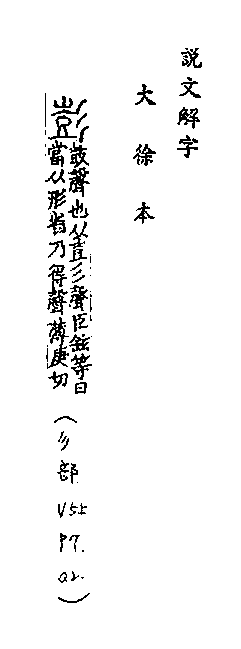 說文解字
大徐本
彭
鼓聲也从壴彡聲臣鉉等曰
當从形省乃得聲薄庚切
(彡部
V55
P7.
02.)